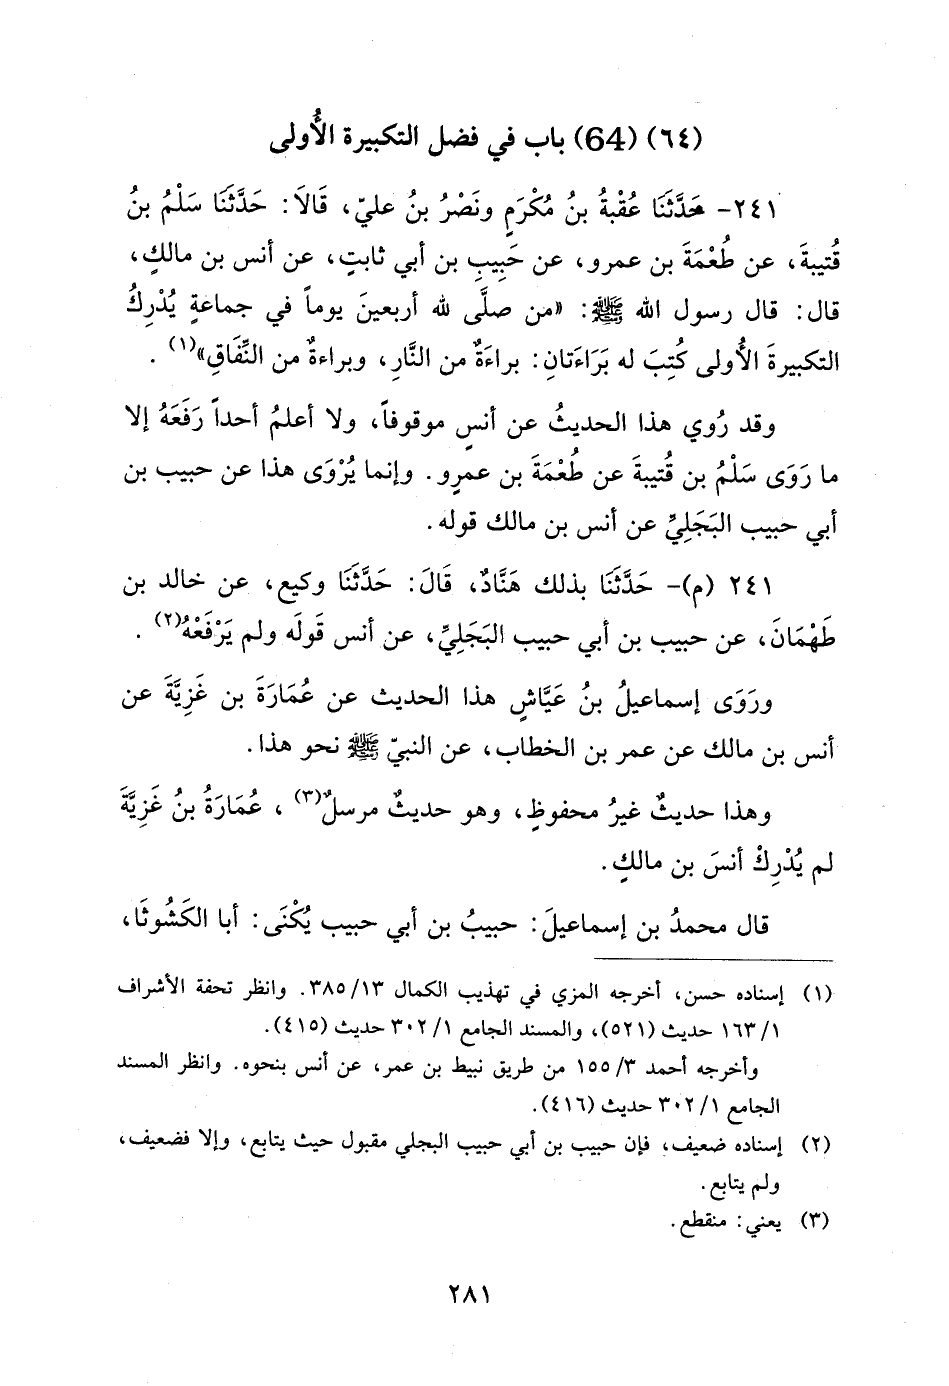 (٦٤) (64) باب في فضل التكبيرة الأُولى
٢٤١- حَدَّثَنَا عُقْبَةُ بنُ مُكْرَمٍ ونَصْرُ بنُ عليّ، قَالَا: حَدَّثَنَا سَلْمُ بنُ
قُتيبةَ، عن طُعْمَةَ بن عمرو، عن حَبِيبِ بن أبي ثابتٍ، عن أنس بن مالكٍ،
قال: قال رسول الله ﷺ: «من صلَّى لله أربعينَ يوماً في جماعةٍ يُدْرِكُ
التكبيرةَ الأُولى كُتِبَ له بَرَاءَتانِ: براءَةٌ من النَّارِ، وبراءةٌ من النِّفَاقِ»(١) .
وقد رُوي هذا الحديثُ عن أنسٍ موقوفاً، ولا أعلمُ أحداً رَفَعَهُ إلا
ما رَوَى سَلْمُ بن قُتيبةَ عن طُعْمَةَ بن عمرٍو. وإنما يُرْوَى هذا عن حبيب بن
أبي حبيب البَجَلِيِّ عن أنس بن مالك قوله.
٢٤١ (م)- حَدَّثَنَا بذلك هَنَّادٌ، قَالَ: حَدَّثَنَا وكيع، عن خالد بن
طَهْمَانَ، عن حبيب بن أبي حبيب البَجَلِيِّ، عن أنس قولَه ولم يَرْفَعْهُ(٢) .
ورَوَى إسماعيلُ بنُ عَيَّاشٍ هذا الحديث عن عُمَارَةَ بن غَزِيَّةَ عن
أنس بن مالك عن عمر بن الخطاب، عن النبيّ ﷺ نحو هذا.
وهذا حديثٌ غيرُ محفوظٍ، وهو حديثٌ مرسلٌ(٣) ، عُمَارَةُ بنُ غَزِيَّةَ
لم يُدْرِكْ أنسَ بن مالكٍ.
قال محمدُ بن إسماعيلَ: حبيبُ بن أبي حبيب يُكْنَى: أبا الكَشُوثَا،
(١) إسناده حسن، أخرجه المزي في تهذيب الكمال ١٣/ ٣٨٥. وانظر تحفة الأشراف
١/ ١٦٣ حديث (٥٢١)، والمسند الجامع ١/ ٣٠٢ حديث (٤١٥).
وأخرجه أحمد ٣/ ١٥٥ من طريق نبيط بن عمر، عن أنس بنحوه. وانظر المسند
الجامع ١/ ٣٠٢ حديث (٤١٦).
(٢) إسناده ضعيف، فإن حبيب بن أبي حبيب البجلي مقبول حيث يتابع، وإلا فضعيف،
ولم يتابع.
(٣) يعني: منقطع.
٢٨١